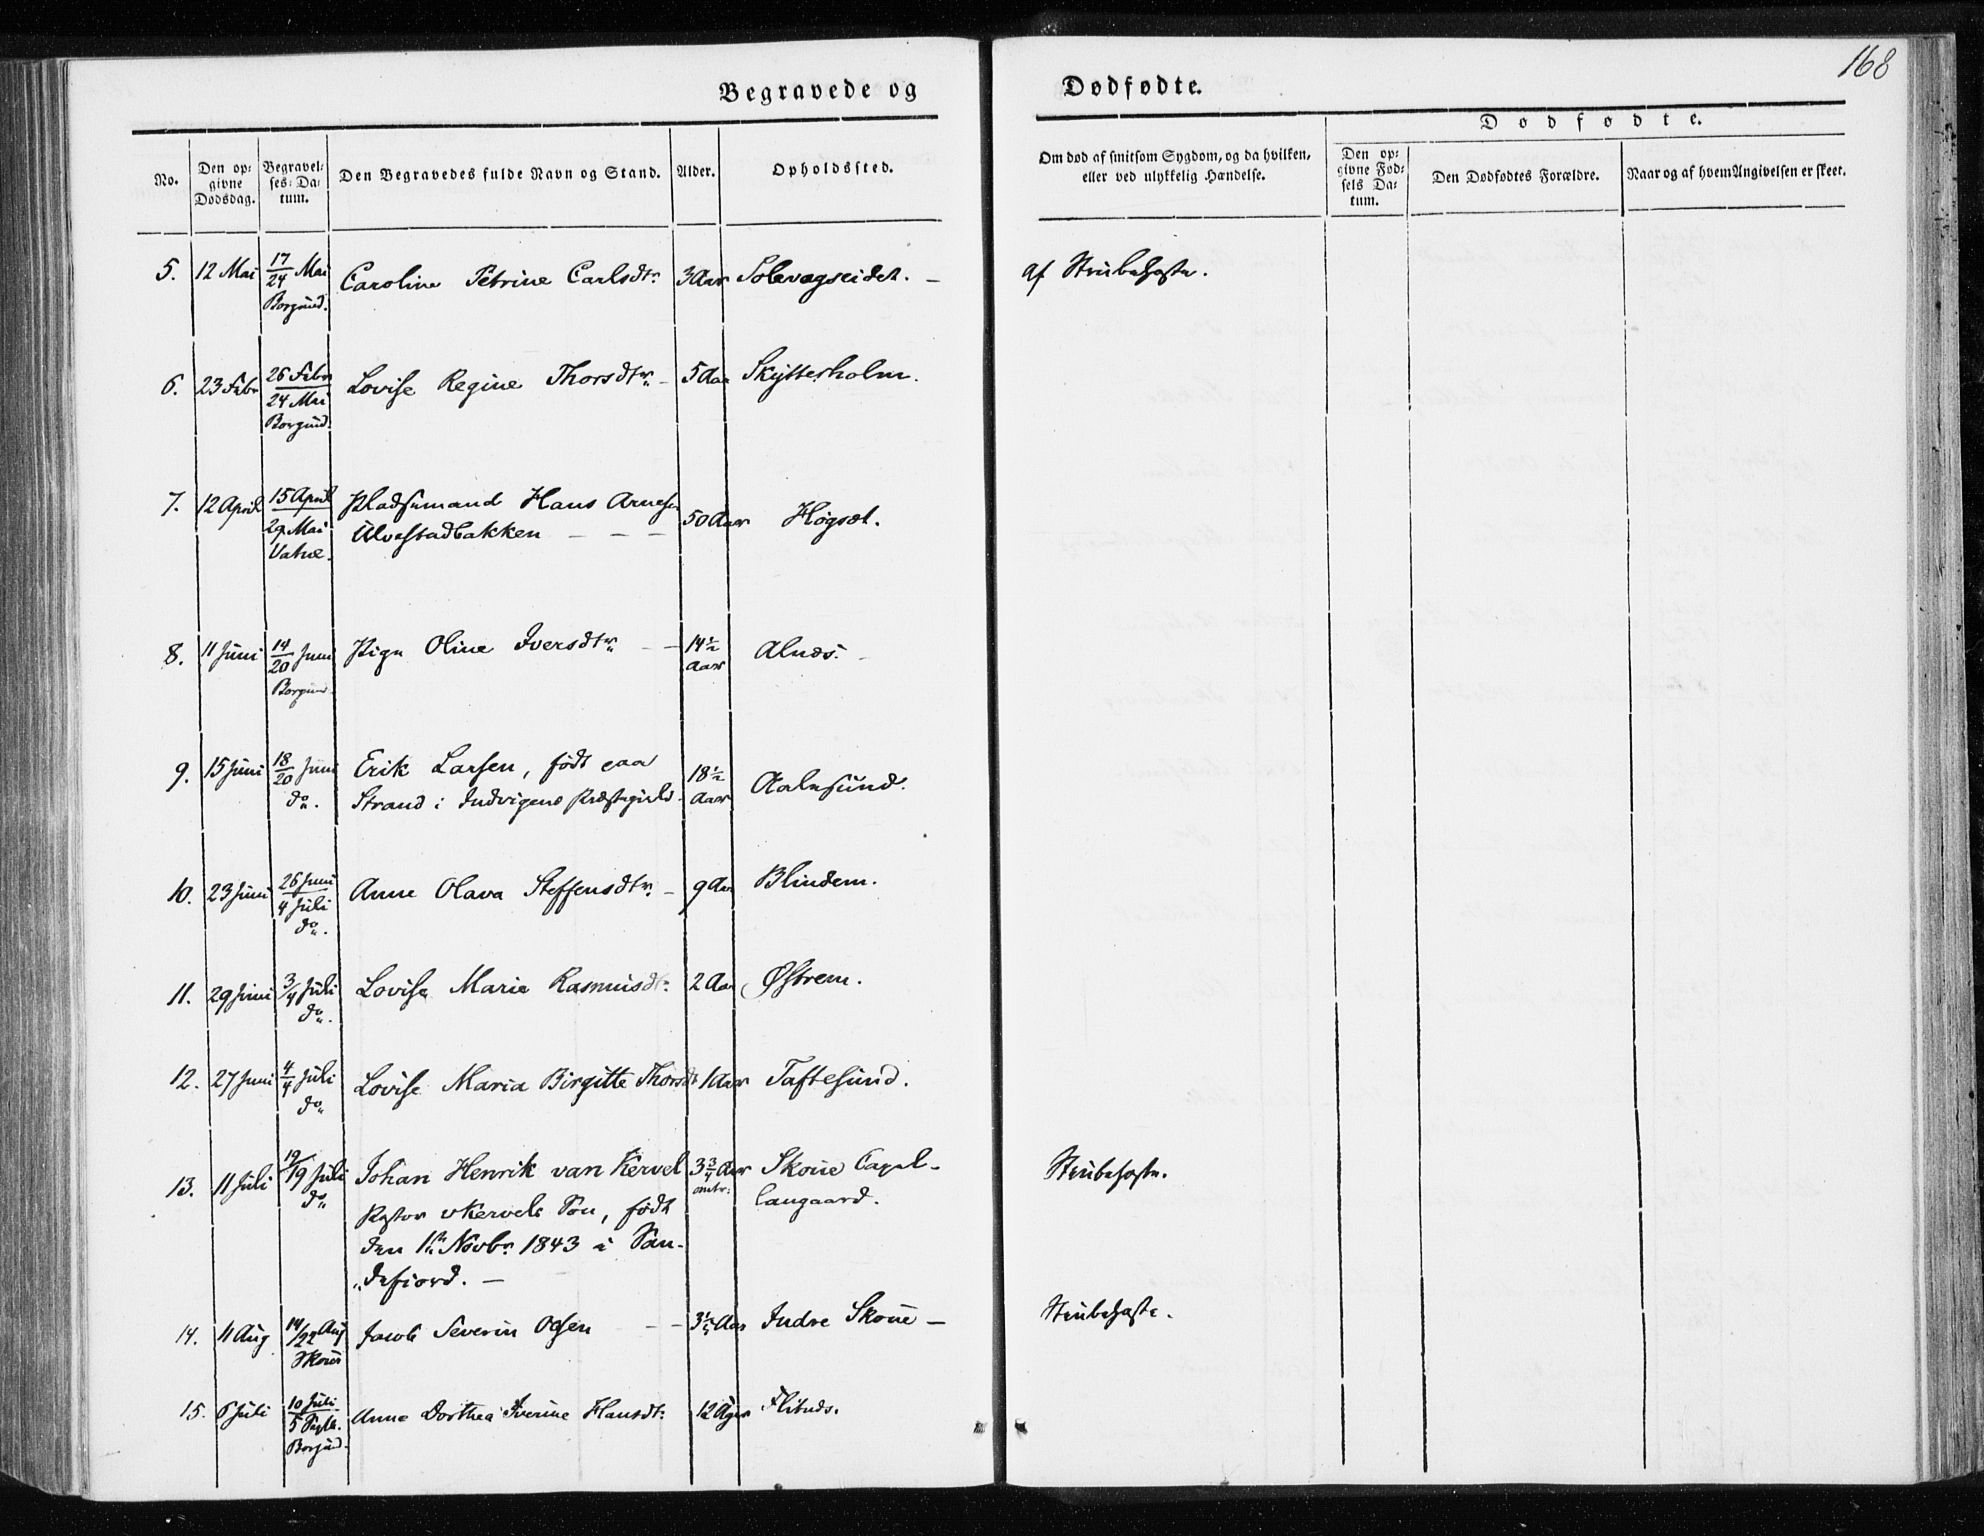 168
Begravede og Dødfødte.
No.
Den opgivne Dødsdag.
Begravelses-Datum.
Den Begravedes fulde Navn og Stand.
Alder.
Opholdssted.
Om død af smitsom Sygdom, og da hvilken, eller ved ulykkelig Hændelse.
Dødfødte.
Den opgivne Fødsels Datum.
Den Dødfødtes Forældre.
Naar og af hvem Angivelsen er skeet.
5. 12 Mai 17/24 Mai Caroline Petrine Carlsdtr. 3 Aar Solevagseidet. – af Strubehoste.
Borgund.
6. 23 Febr 26 Febr Lovise Regine Thorsdtr. – 5 Aar Skytterholm.
24 Mai
Borgund.
7. 12 April 15 April Pladsemand Hans Arnesen 50 Aar Høgsæt.
29 Mai Ulvestadbakken – – –
Vatne.
8. 11 Juni 14/20 Juni Pige Oline Iversdtr. – – 14½ Aar Alnæs. –
Borgund
9. 15 Juni 18/20 Juni Erik Larsen, født paa 18½ Aar Aalesund.
do. Strand i Indvigens Præstegield.
10. 23 Juni 26 Juni Anne Olava Steffensdtr. – 9 Aar Blindem.
4 Juli
do.
11. 29 Juni 3/4 Juli Lovise Marie Rasmusdtr. 2 Aar Østrem.
do.
12. 27 Juni 4/4 Juli Lovise Maria Birgitte Thorsdt 1 Aar Taftesund.
do
13. 11 Juli 19/19 Juli Johan Henrik van Kervel 3¾ Aar Skoue Capel- Strubehoste.
do Pastor vKervels Søn, født omtr. langaard.
den 1ste Novbr. 1843 i San-
defiord. –
14. 11 Aug 14/22 Aug Jacob Severin Olsen – – 3½ Aar Indre Skoue – Strubehoste.
Skoue
15. 6 Juli 10 Juli Anne Dorthea Iverine Hansdt. 12 Flisnæs.
5 Septb.
Borgund.